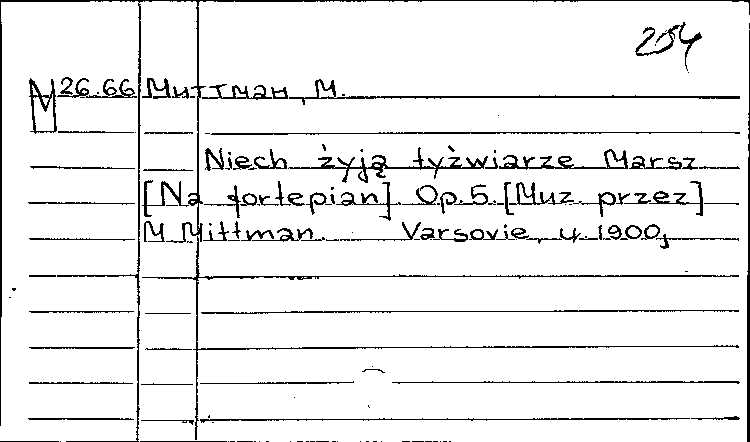 254
М 26.66 Миттман, М.
Niech żyją łyżwiarze Marsz
[Na fortepian]. Op. 5. [Muz. przez]
M. Mittman. Varsovie, ц. 1900,